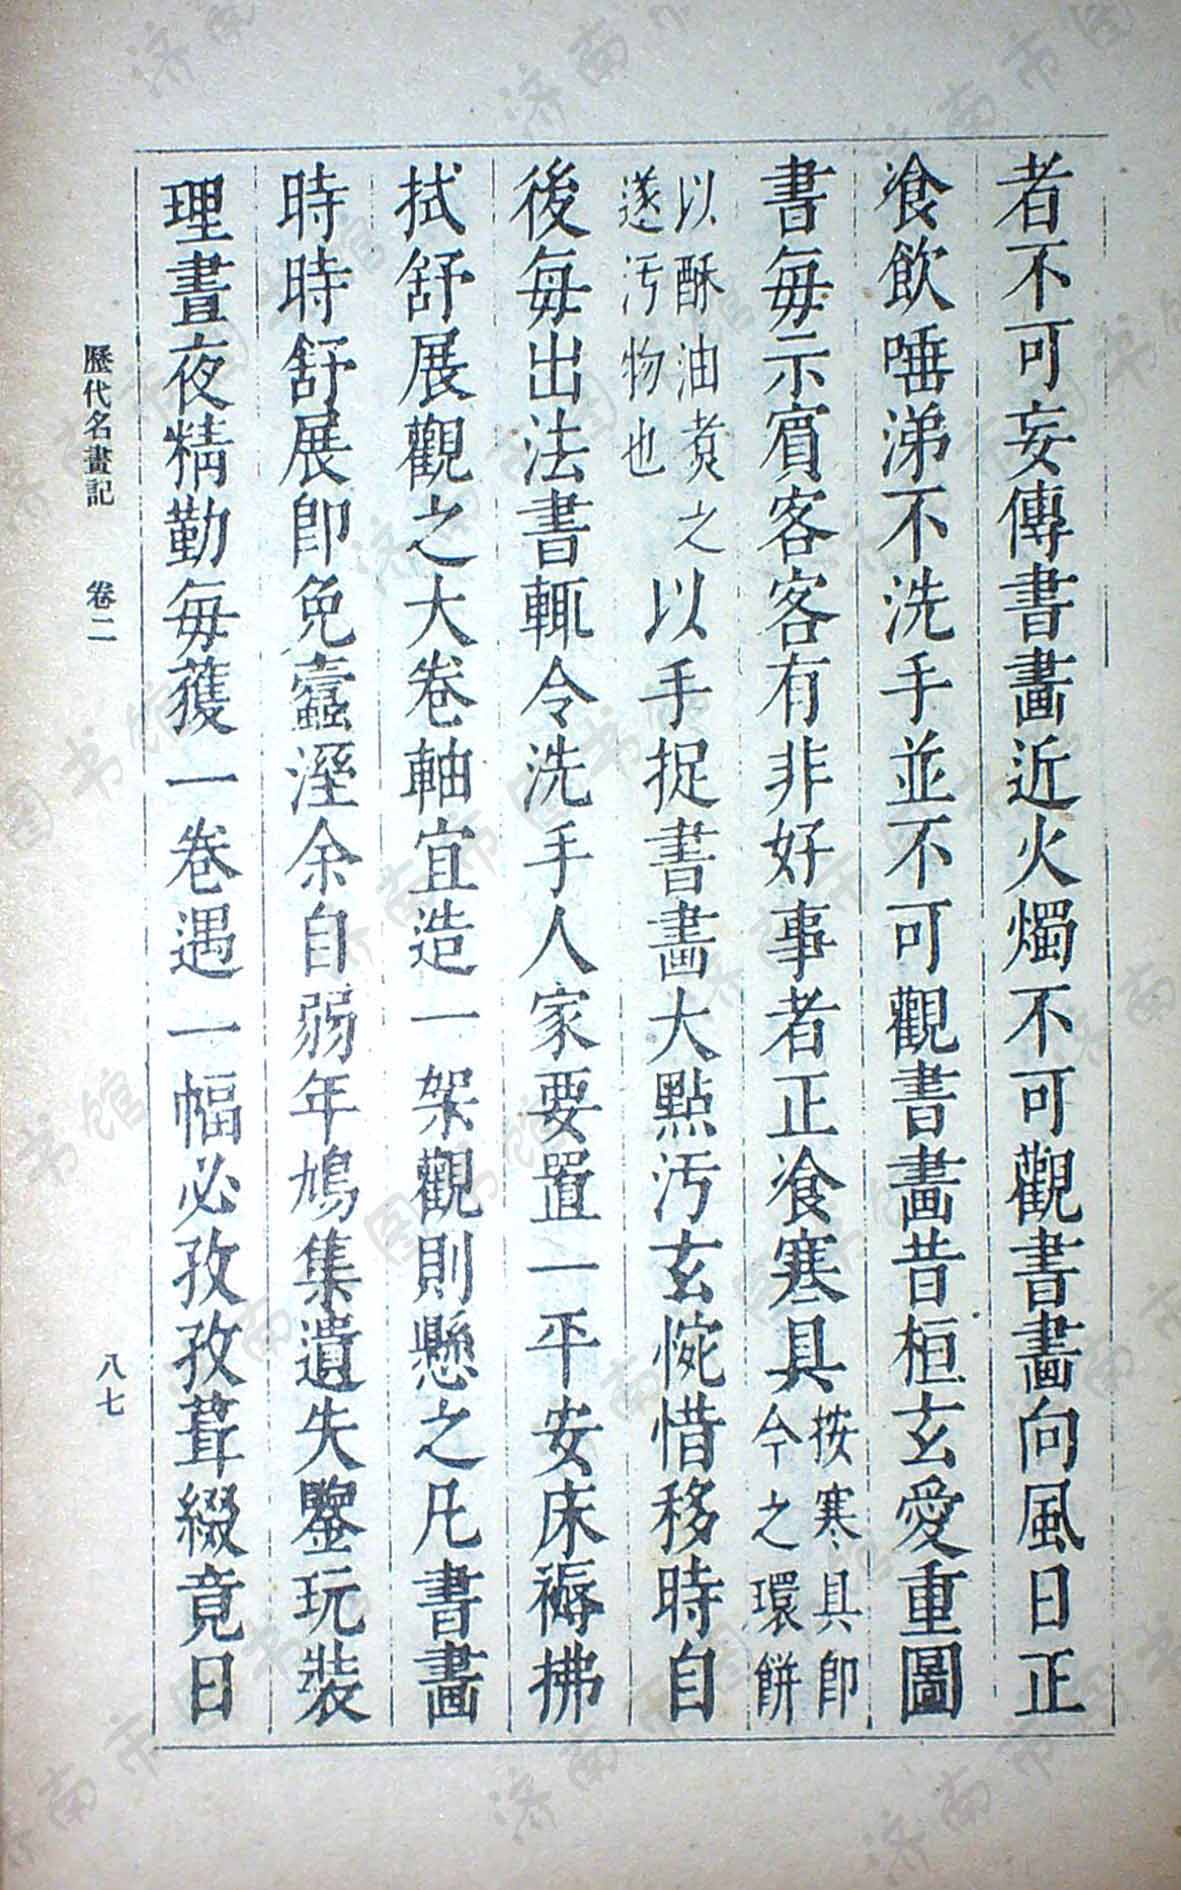 者不可妄傳書畫近火燭不可觀書畫向風日正
飡飲唾涕不洗手並不可觀書畫昔桓玄愛重圖
書每示賔客客有非好事者正飡寒具按寒具即今之環餅
以酥油煑之遂汚物也以手捉書畫大點汚玄惋惜移時自
後每出法書輒令洗手人家要置一平安床褥拂
拭舒展觀之大卷軸宜造一架觀則懸之凡書畫
時時舒展即免蠧溼余自弱年鳩集遺失鑒玩裝
理晝夜精勤每獲一卷遇一幅必孜孜葺綴竟日
歷代名畫記 卷二 八七
济南市图书馆